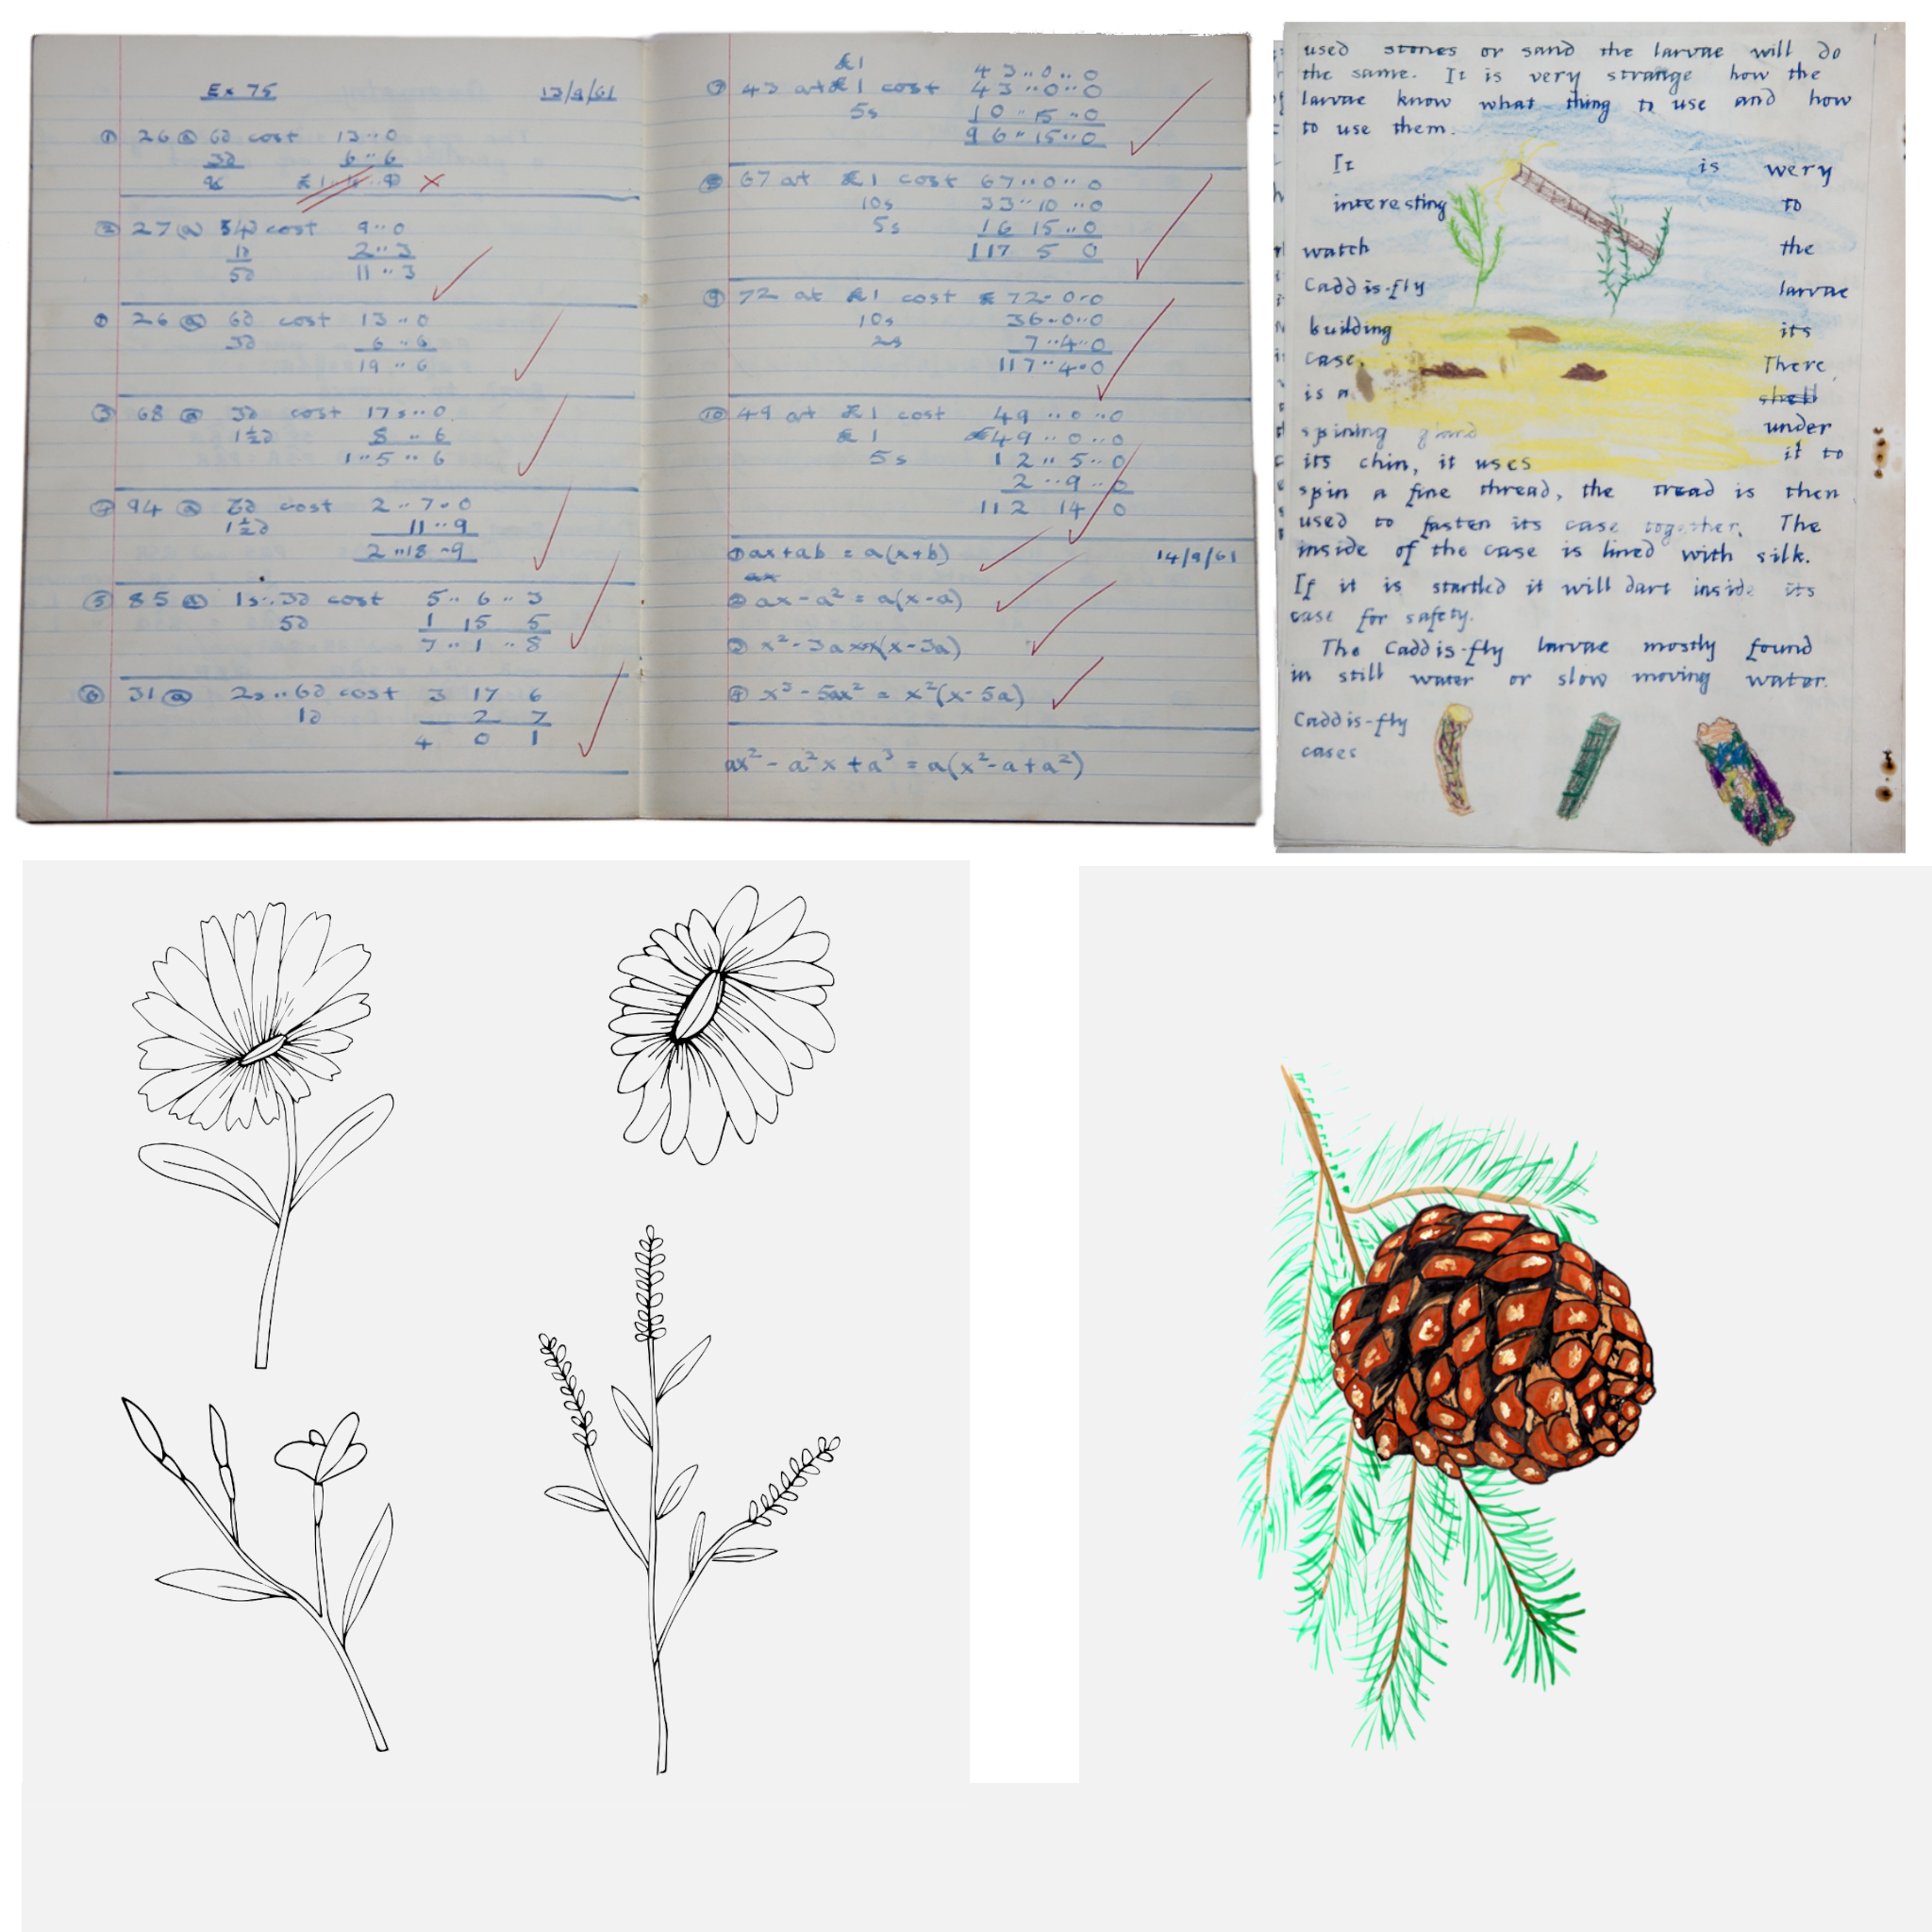 Ex 75 13/9/61
① 26 @ 6d cost 13··0
3d 6··6
② 27 @ cost 9··0
1d 2··3
5d 11··3
26 @ 6d cost 13··0
3d 6··6
19··6
③ 68 @ 3d cost 17s··0
1½d 8··6
1··5··6
94 @ cost 2··7··0
1½d 11··9
2··18··9
⑤ 85 @ 1s··3d cost 5··6··3
5d 1 15 5
7··1··8
⑥ 31 @ 2s··6d cost 3 17 6
1d 2 7
4 0 1
£1 43··0··0
⑦ 43 at £1 cost 43··0··0
5s 10··15··0
96··15··0
67 at £1 cost 67··0··0
10s 33··10··0
5s 16 15··0
117 5 0
⑨ 72 at £1 cost 72··0··0
10s 36··0··0
2s 7··4··0
117··4··0
⑩ 49 at £1 cost 49··0··0
£1 49··0··0
5s 12··5··0
2··9··0
112 14 0
① ax+ab = a(x+b) 14/9/61
ax
② ax-a² = a(x-a)
③ x²-3ax x(x-3a)
④ x³-5ax² = x²(x-5a)
ax²-a²x+a³ = a(x²-a+a²)
used stones or sand the larvae will do
the same. It is very strange how the
larvae know what thing to use and how
to use them.
It is wery
interesting to
watch the
Caddis-fly larvae
building its
case. There
is a shell
spining gland under
its chin, it uses it to
spin a fine thread, the tread is then
used to fasten its case together. The
inside of the case is lined with silk.
If it is startled it will dart inside its
case for safety.
The Caddis-fly larvae mostly found
in still water or slow moving water.
Caddis-fly
cases